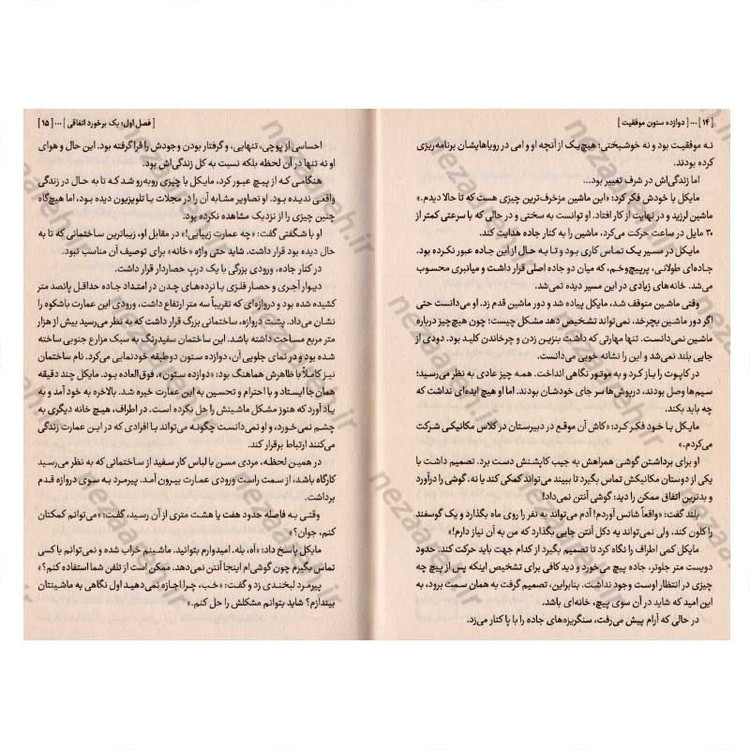 [ ۱۴ ] ... [ دوازده ستون موفقیت ]
نه موفقیت بود و نه خوشبختی؛ هیچ‌یک از آنچه او و امی در رویاهایشان برنامه‌ریزی
کرده بودند.
اما زندگی‌اش در شرف تغییر بود...
مایکل با خودش فکر کرد: «این ماشین مزخرف‌ترین چیزی هست که تا حالا دیدم.»
ماشین لرزید و در نهایت از کار افتاد. او توانست به سختی و در حالی که با سرعتی کمتر از
۳۰ مایل در ساعت حرکت می‌کرد، ماشین را به کنار جاده هدایت کند.
مایکل در مسیر یک تماس کاری بود و تا به حال از این جاده عبور نکرده بود.
جاده‌ای طولانی، پرپیچ‌وخم، که میان دو جاده اصلی قرار داشت و میانبری محسوب
می‌شد. خانه‌های زیادی در این مسیر دیده نمی‌شد.
وقتی ماشین متوقف شد، مایکل پیاده شد و دور ماشین قدم زد. او می‌دانست حتی
اگر دور ماشین بچرخد، نمی‌تواند تشخیص دهد مشکل چیست؛ چون هیچ‌چیز درباره
ماشین نمی‌دانست. تنها مهارتی که داشت بنزین زدن و چرخاندن کلید بود. دودی از
جایی بلند نمی‌شد و این را نشانه خوبی می‌دانست.
در کاپوت را باز کرد و به موتور نگاهی انداخت. همه چیز عادی به نظر می‌رسید؛
سیم‌ها وصل بودند، درپوش‌ها سر جای خودشان بودند. اما او هیچ ایده‌ای نداشت که
چه باید بکند.
مایکل با خود فکر کرد: «کاش آن موقع در دبیرستان در کلاس مکانیکی شرکت
می‌کردم.»
او برای برداشتن گوشی همراهش به جیب کاپشنش دست برد. تصمیم داشت با
یکی از دوستان مکانیکش تماس بگیرد تا ببیند می‌تواند کمکی کند یا نه. گوشی را درآورد
و بدترین اتفاق ممکن را دید: گوشی آنتن نمی‌داد!
بلند گفت: «واقعاً شانس آوردم! آدم می‌تواند یه نفر را روی ماه بگذارد و یک گوسفند
را کلون کند، ولی نمی‌تواند یه دکل آنتن جایی بگذارد که من به آن نیاز دارم!»
مایکل کمی اطراف را نگاه کرد تا تصمیم بگیرد از کدام جهت باید حرکت کند. حدود
دویست متر جلوتر، جاده پیچ می‌خورد و دید کافی برای تشخیص اینکه پس از پیچ چه
چیزی در انتظار اوست وجود نداشت. بنابراین، تصمیم گرفت به همان سمت برود، به
این امید که شاید در آن سوی پیچ، خانه‌ای باشد.
در حالی که آرام پیش می‌رفت، سنگریزه‌های جاده را با پا کنار می‌زد.
[ فصل اول: یک برخورد اتفاقی ] ... [ ۱۵ ]
احساسی از پوچی، تنهایی، و گرفتار بودن وجودش را فرا گرفته بود. این حال و هوای
او نه تنها در آن لحظه بلکه نسبت به کل زندگی‌اش بود.
هنگامی که از پیچ عبور کرد، مایکل با چیزی روبه‌رو شد که تا به حال در زندگی
واقعی ندیده بود. او تصاویر مشابه آن را در مجلات یا تلویزیون دیده بود، اما هیچ‌گاه
چنین چیزی را از نزدیک مشاهده نکرده بود.
او با شگفتی گفت: «چه عمارت زیبایی!» در مقابل او، زیباترین ساختمانی که تا به
حال دیده بود قرار داشت. شاید حتی واژه «خانه» برای توصیف آن مناسب نبود.
در کنار جاده، ورودی بزرگی با یک درب حصاردار قرار داشت.
دیوار آجری و حصار فلزی با نرده‌های چدن در امتداد جاده حداقل پانصد متر
کشیده شده بود و دروازه‌ای که تقریباً سه متر ارتفاع داشت، ورودی این عمارت باشکوه را
نشان می‌داد. پشت دروازه، ساختمانی بزرگ قرار داشت که به نظر می‌رسید بیش از هزار
متر مربع مساحت داشته باشد. این ساختمان سفیدرنگ به سبک مزارع جنوبی ساخته
شده بود و در نمای جلویی آن، دوازده ستون دوطبقه خودنمایی می‌کرد. نام ساختمان
نیز کاملاً با ظاهرش هماهنگ بود: «دوازده ستون.» فوق‌العاده بود. مایکل چند دقیقه
همان جا ایستاد و با احترام و تحسین به این عمارت خیره شد. بالاخره به خود آمد و به
یاد آورد که هنوز مشکل ماشینش را حل نکرده است. در اطراف، هیچ خانه دیگری به
چشم نمی‌خورد، و او نمی‌دانست چگونه می‌تواند با افرادی که در این عمارت زندگی
می‌کنند ارتباط برقرار کند.
در همین لحظه، مردی مسن با لباس کار سفید از ساختمانی که به نظر می‌رسید
کارگاه باشد، از سمت راست ورودی عمارت بیرون آمد. پیرمرد به سوی دروازه قدم
برداشت.
وقتی به فاصله حدود هفت یا هشت متری از آن رسید، گفت: «می‌توانم کمکتان
کنم، جوان؟»
مایکل پاسخ داد: «آه، بله. امیدوارم بتوانید. ماشینم خراب شده و نمی‌توانم با کسی
تماس بگیرم چون گوشی‌ام اینجا آنتن نمی‌دهد. ممکن است از تلفن شما استفاده کنم؟»
پیرمرد لبخندی زد و گفت: «خب، چرا اجازه نمی‌دهید اول نگاهی به ماشینتان
بیندازم؟ شاید بتوانم مشکلش را حل کنم.»
nezaabeh.ir